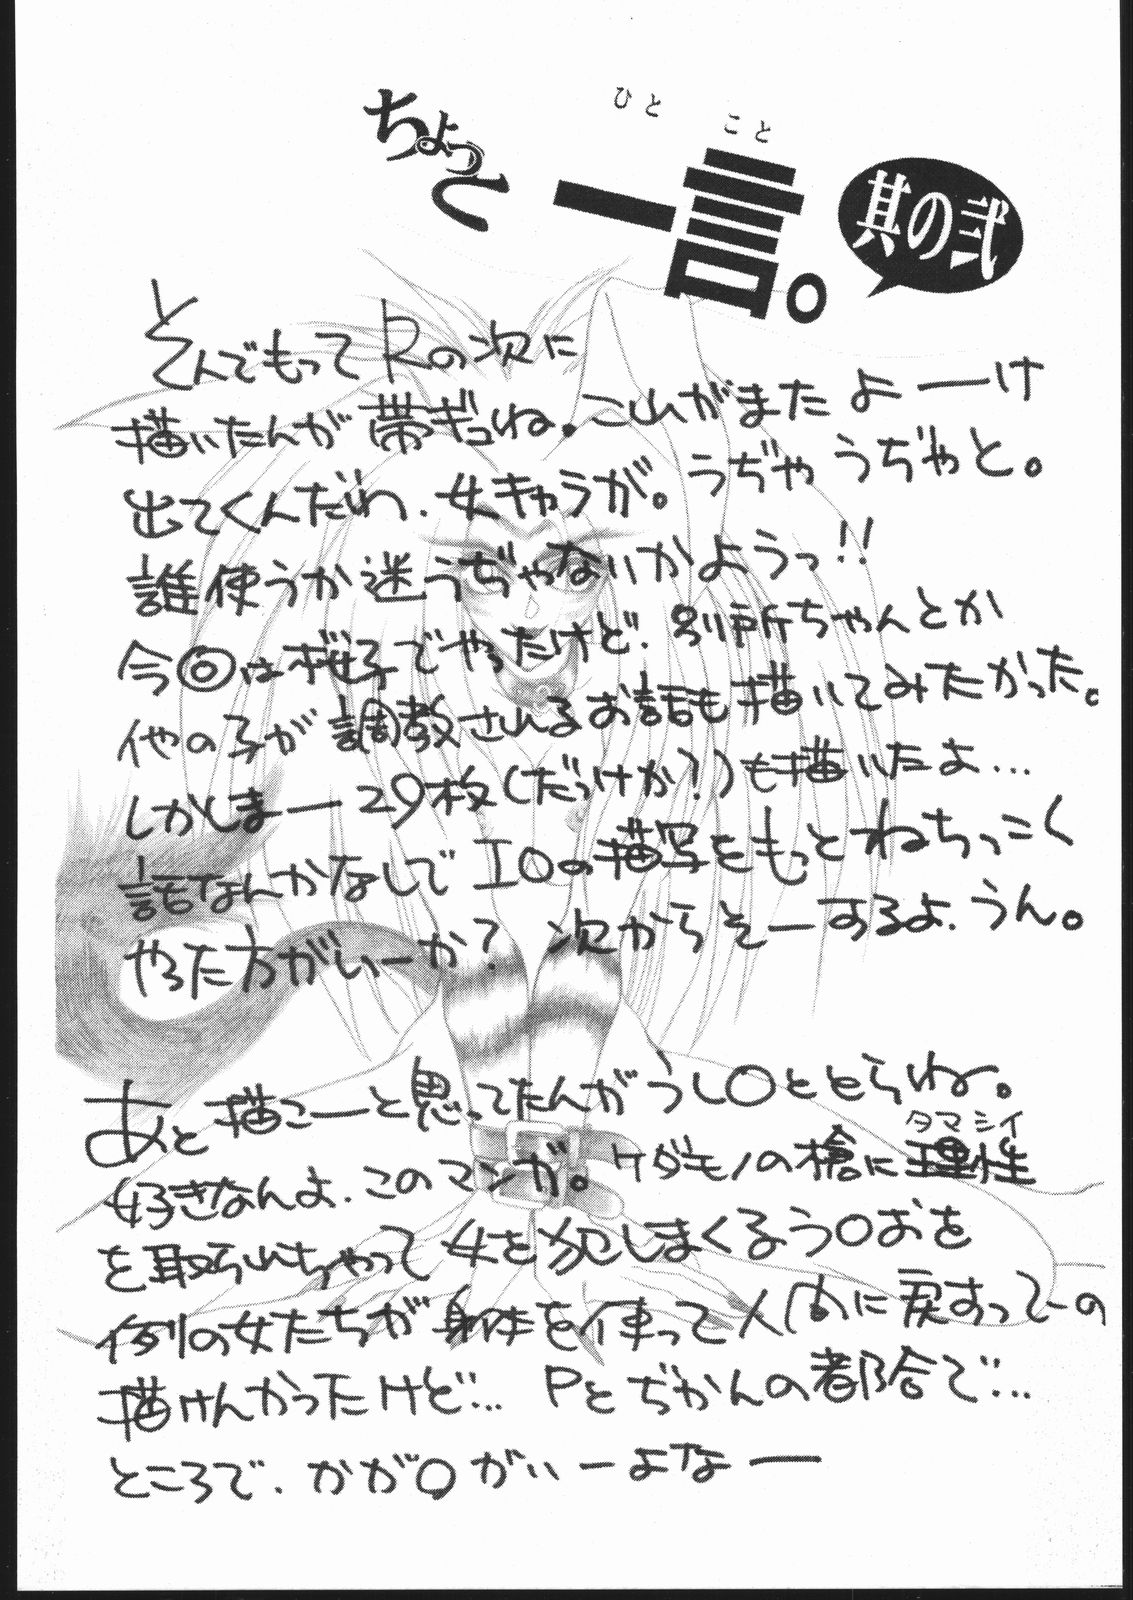 ちょっと一言。
ひと こと
其の弐
とんでもって Rの次に
描いたんが帯ギュね。こいがまた よーけ
出てくんだわ、女きゃラが。うぢゃうぢゃと。
誰使うか迷うぢゃないかようっ!!
今回は桜子でやったけど、別所ちゃんとか
他の子が調教されるお話も描いてみたかった。
しかしまー29枚(だっけか?)も描いたよ…
話なんかなしでIOの描写をもっとねちっこく
やった方がいーか? 次からそーするよ、うん。
あと描こーと思ってたんがうし○ととらね。
好きなんよ、このマンガ。ケダモノの槍に理性
タマシイ
を取られちゃって女を犯しまくるう○おを
例の女たちが身体を使って人間に戻すってーの
描けんかったけど… Pとぢかんの都合で…
ところで、かが○がいーよなー